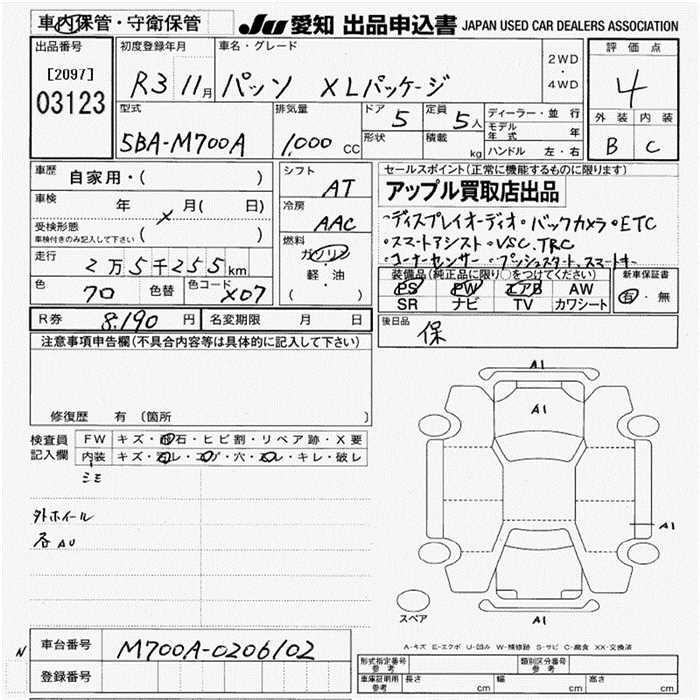 車内保管・守衛保管 JU 愛知 出品申込書 JAPAN USED CAR DEALERS ASSOCIATION
出品番号 初度登録年月 車名・グレード 評価点
[2097] 03123 R3 11月 パッソ XLパッケージ 2WD・4WD 4
型式 排気量 ドア 5 定員 5人 ディーラー・並行 外装 内装
5BA-M700A 1,000 CC 形状 積載 kg モデル年式 年 B C
ハンドル 左・右
車歴 自家用・( ) シフト AT セールスポイント(正常に機能するものに限ります)
車検 年 月( 日) 冷房 AAC アップル買取店出品
受検形態 ( )
車検付きのみ記入して下さい
・ディスプレイオーディオ・バックカメラ・ETC
・スマートアシスト・VSC.TRC
・コーナーセンサー・プッシュスタート.スマートキー
走行 2万5千255km 燃料 ガソリン
軽・油
( )
色 70 色替 色コード X07
装備品(純正品に限り○をつけてください) 新車保証書
PS PW エアB AW 有・無
SR ナビ TV カワシート
R券 8,190円 名変期限 月 日 後日品 保
注意事項申告欄(不具合内容等は具体的に記入して下さい)
修復歴 有 (箇所 )
検査員記入欄 FW キズ・飛石・ヒビ割・リペア跡・X要
内装 キズ・汚レ・コゲ・穴・スレ・キレ・破レ
シミ
外ホイール
各AU
A1
A1
A1
A1
スペア
A-キズ E-エクボ U-凹み W-補修跡 S-サビ C-腐食 XX-交換済
N 車台番号 M700A-0206102
登録番号
形式指定番号 参考 類別区分番号 参考
車庫証明用 参考 長さ cm 幅 cm 高さ cm